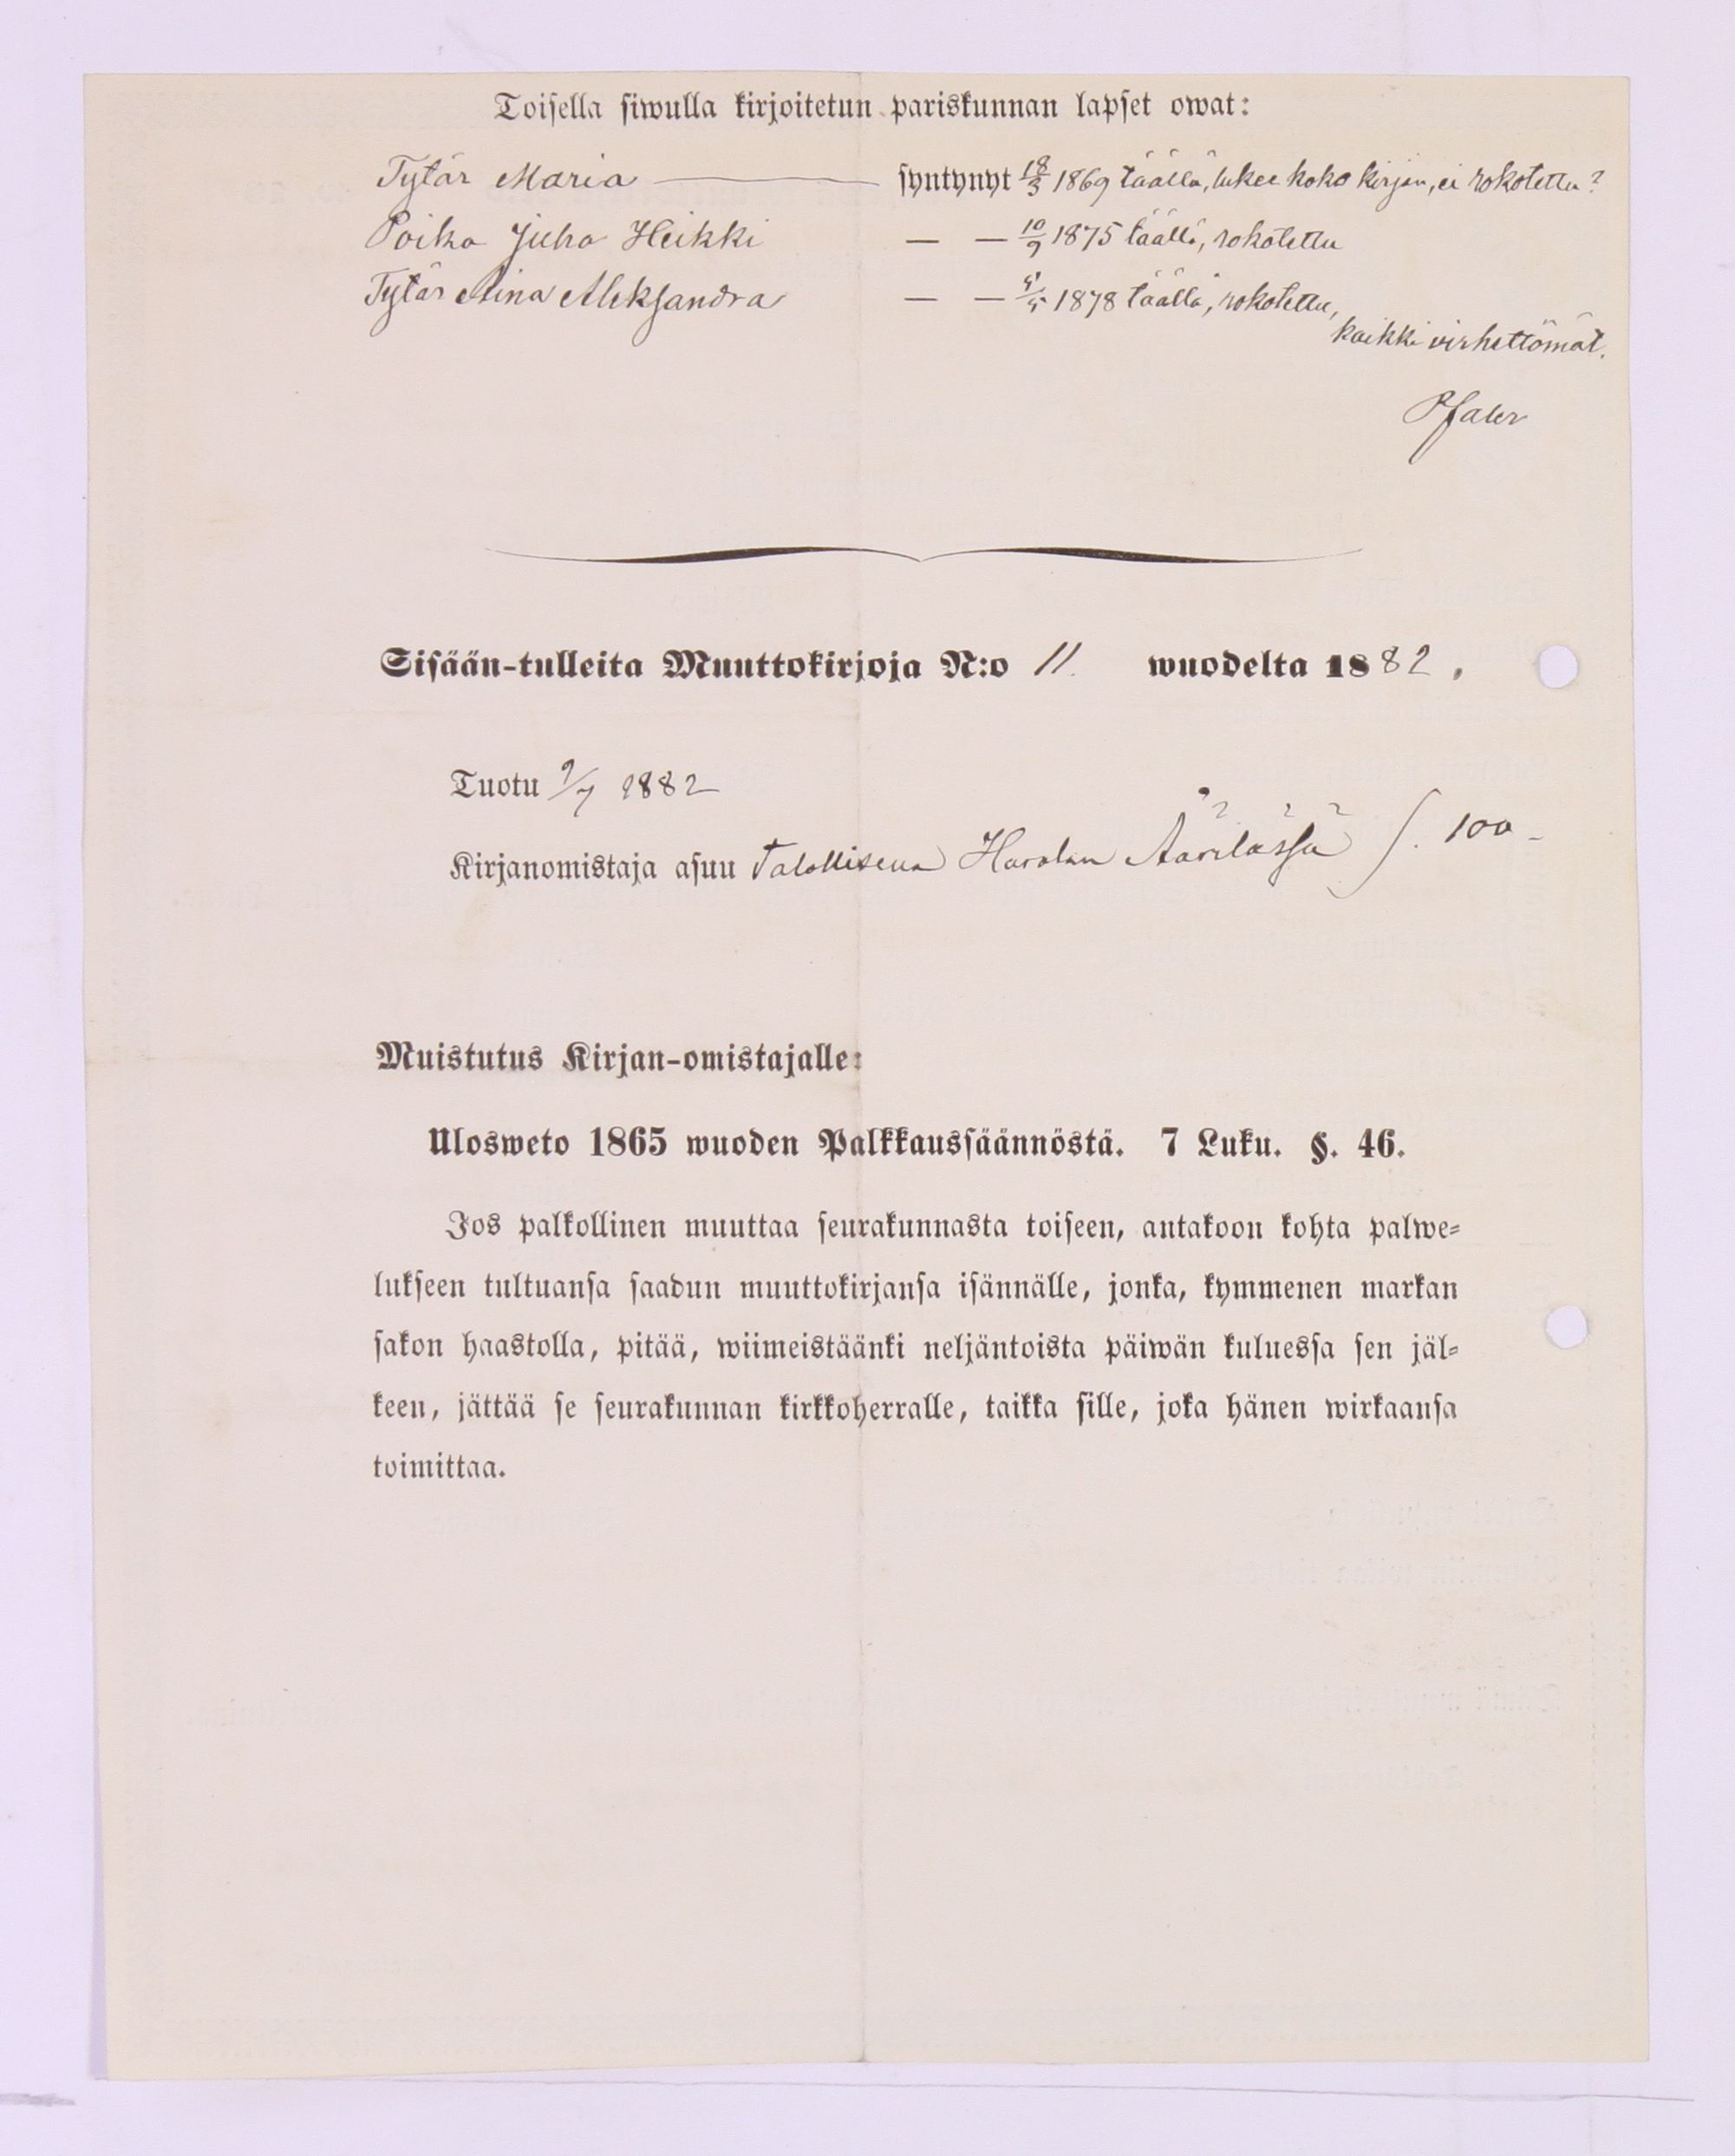 Toisella siwulla kirjoitetun pariskunnan lapset owat:
Tytär Maria — syntynyt 18/3 1869 täällä, lukee koko kirjan, ei rokotettu?
Poika Juho Heikki — — 10/9 1875 täällä, rokotettu
Tytär Aina Aleksandra — — 1878 täällä, rokotettu,
kaikki virhettömät.
Pfaler
Sisään-tulleita Muuttokirjoja N:o 11. wuodelta 1882.
Tuotu 9/7 1882
Kirjanomistaja asuu Talollisena Harolan Äärilässä S. 100 -
Muistutus Kirjan-omistajalle:
Ulosweto 1865 wuoden Palkkaussäännöstä. 7 Luku. §. 46.
Jos palkollinen muuttaa seurakunnasta toiseen, antakoon kohta palwe-
lukseen tultuansa saadun muuttokirjansa isännälle, jonka, kymmenen markan
sakon haastolla, pitää, wiimeistäänki neljäntoista päiwän kuluessa sen jäl-
keen, jättää se seurakunnan kirkkoherralle, taikka sille, joka hänen wirkaansa
toimittaa.